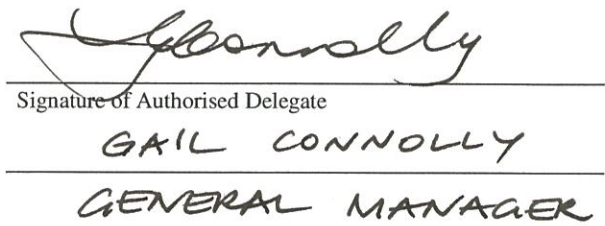 GConnolly
Signature of Authorised Delegate
GAIL CONNOLLY
GENERAL MANAGER